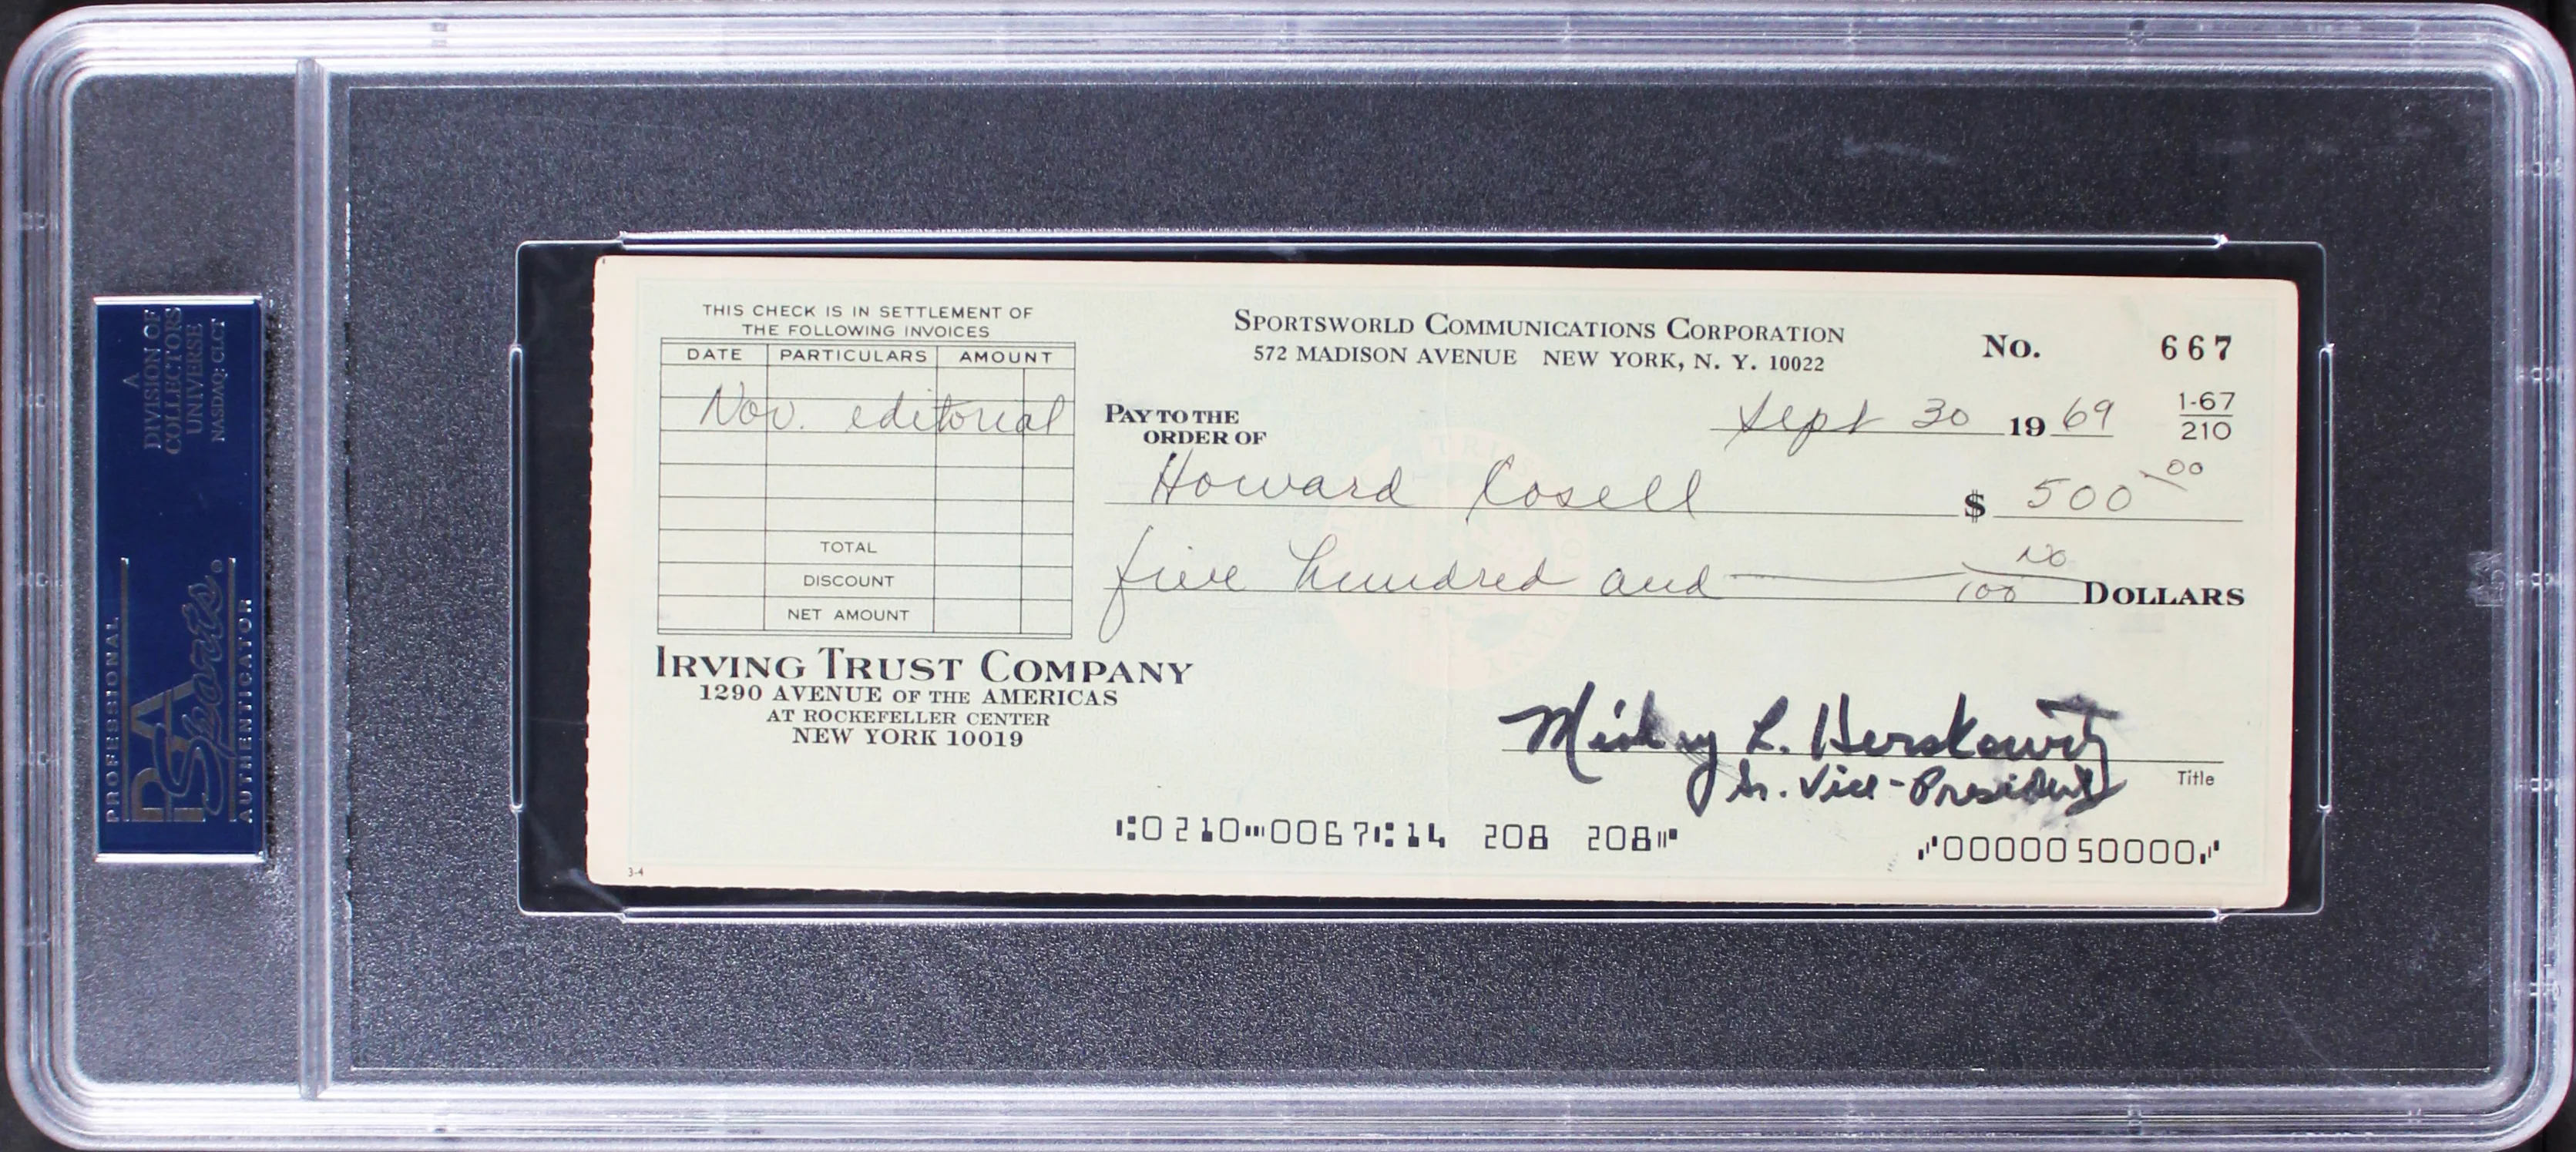 A
DIVISION OF
COLLECTORS
UNIVERSE
NASDAQ: CLCT
PROFESSIONAL
PSA
Sports
AUTHENTICATOR
THIS CHECK IS IN SETTLEMENT OF
THE FOLLOWING INVOICES
DATE PARTICULARS AMOUNT
Nov. editorial
TOTAL
DISCOUNT
NET AMOUNT
SPORTSWORLD COMMUNICATIONS CORPORATION
572 MADISON AVENUE NEW YORK, N. Y. 10022
No. 667
Sept 30 1969
1-67
210
PAY TO THE
ORDER OF
Howard Cosell $ 500 00
five hundred and no/100 DOLLARS
IRVING TRUST COMPANY
1290 AVENUE OF THE AMERICAS
AT ROCKEFELLER CENTER
NEW YORK 10019
Mickey L. Herskowitz
Sr. Vice-President
Title
⑆0210⑉0067⑆14 208 208⑈
⑇0000050000⑇
3-4